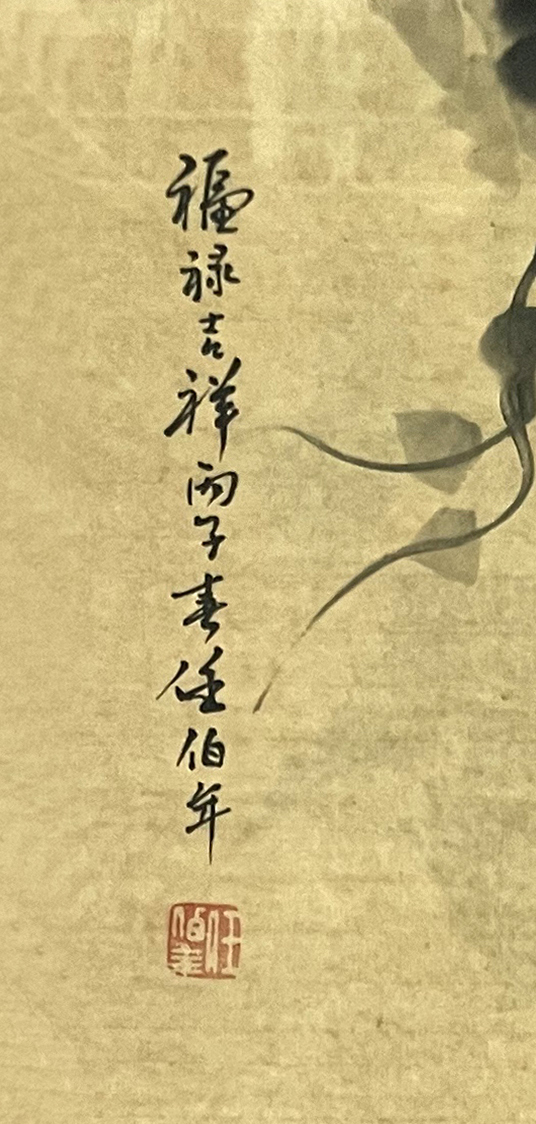 福禄吉祥丙子春任伯年
任伯年